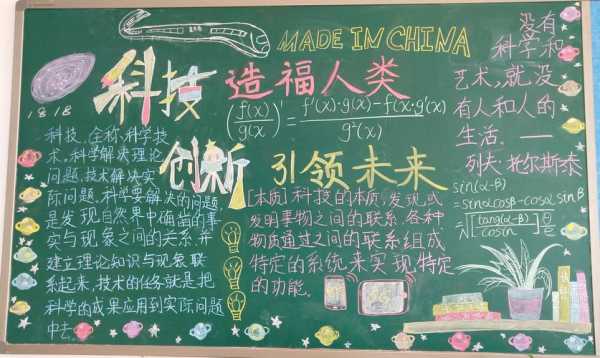 MADE IN CHINA
科技 造福人类
创新 引领未来
1818
科技，全称，科学技
术，科学解决理论
问题，技术解决实
际问题，科学要解决的问题
是发现自然界中确凿的事
实与现象之间的关系，并
建立理论知识与现象联
系起来，技术的任务就是把
科学的成果应用到实际问题
中去。
(f(x)/g(x))' = f'(x)·g(x)-f(x)·g'(x)/g²(x)
[本质]科技的本质，发现或
发明事物之间的联系，各种
物质通过之间的联系组成
特定的系统来实现特定
的功能。
没有
科学和
艺术，就没
有人和人的
生活。——
列夫·托尔斯泰
sin(α-β)
=sinαcosβ-cosα sinβ